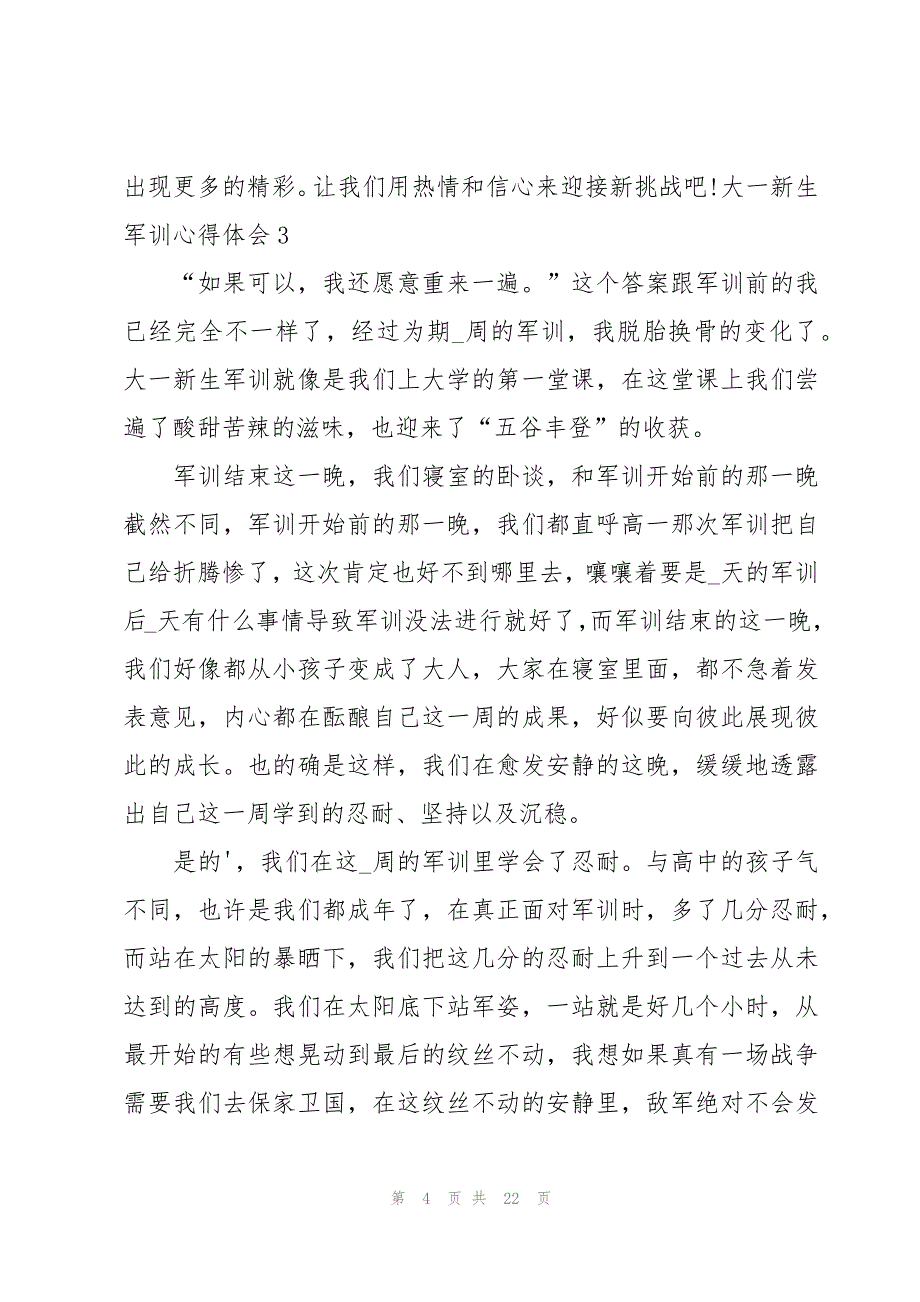 出现更多的精彩。让我们用热情和信心来迎接新挑战吧!大一新生
军训心得体会3
“如果可以，我还愿意重来一遍。”这个答案跟军训前的我
已经完全不一样了，经过为期_周的军训，我脱胎换骨的变化了。
大一新生军训就像是我们上大学的第一堂课，在这堂课上我们尝
遍了酸甜苦辣的滋味，也迎来了“五谷丰登”的收获。
军训结束这一晚，我们寝室的卧谈，和军训开始前的那一晚
截然不同，军训开始前的那一晚，我们都直呼高一那次军训把自
己给折腾惨了，这次肯定也好不到哪里去，嚷嚷着要是_天的军训
后_天有什么事情导致军训没法进行就好了，而军训结束的这一晚，
我们好像都从小孩子变成了大人，大家在寝室里面，都不急着发
表意见，内心都在酝酿自己这一周的成果，好似要向彼此展现彼
此的成长。也的确是这样，我们在愈发安静的这晚，缓缓地透露
出自己这一周学到的忍耐、坚持以及沉稳。
是的'，我们在这_周的军训里学会了忍耐。与高中的孩子气
不同，也许是我们都成年了，在真正面对军训时，多了几分忍耐，
而站在太阳的暴晒下，我们把这几分的忍耐上升到一个过去从未
达到的高度。我们在太阳底下站军姿，一站就是好几个小时，从
最开始的有些想晃动到最后的纹丝不动，我想如果真有一场战争
需要我们去保家卫国，在这纹丝不动的安静里，敌军绝对不会发
第 4 页 共 22 页